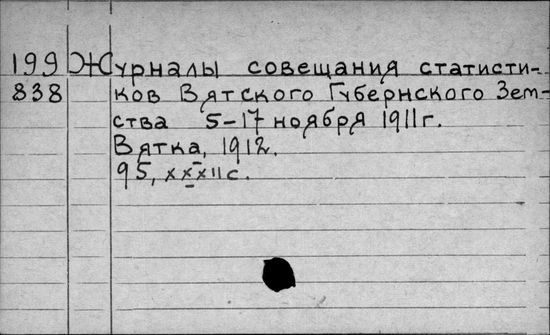 199 Журналы совещания статисти-
838 ков Вятского Губернского Зем-
ства 5-17 ноября 1911г.
Вятка, 1912.
95, xxxii с.